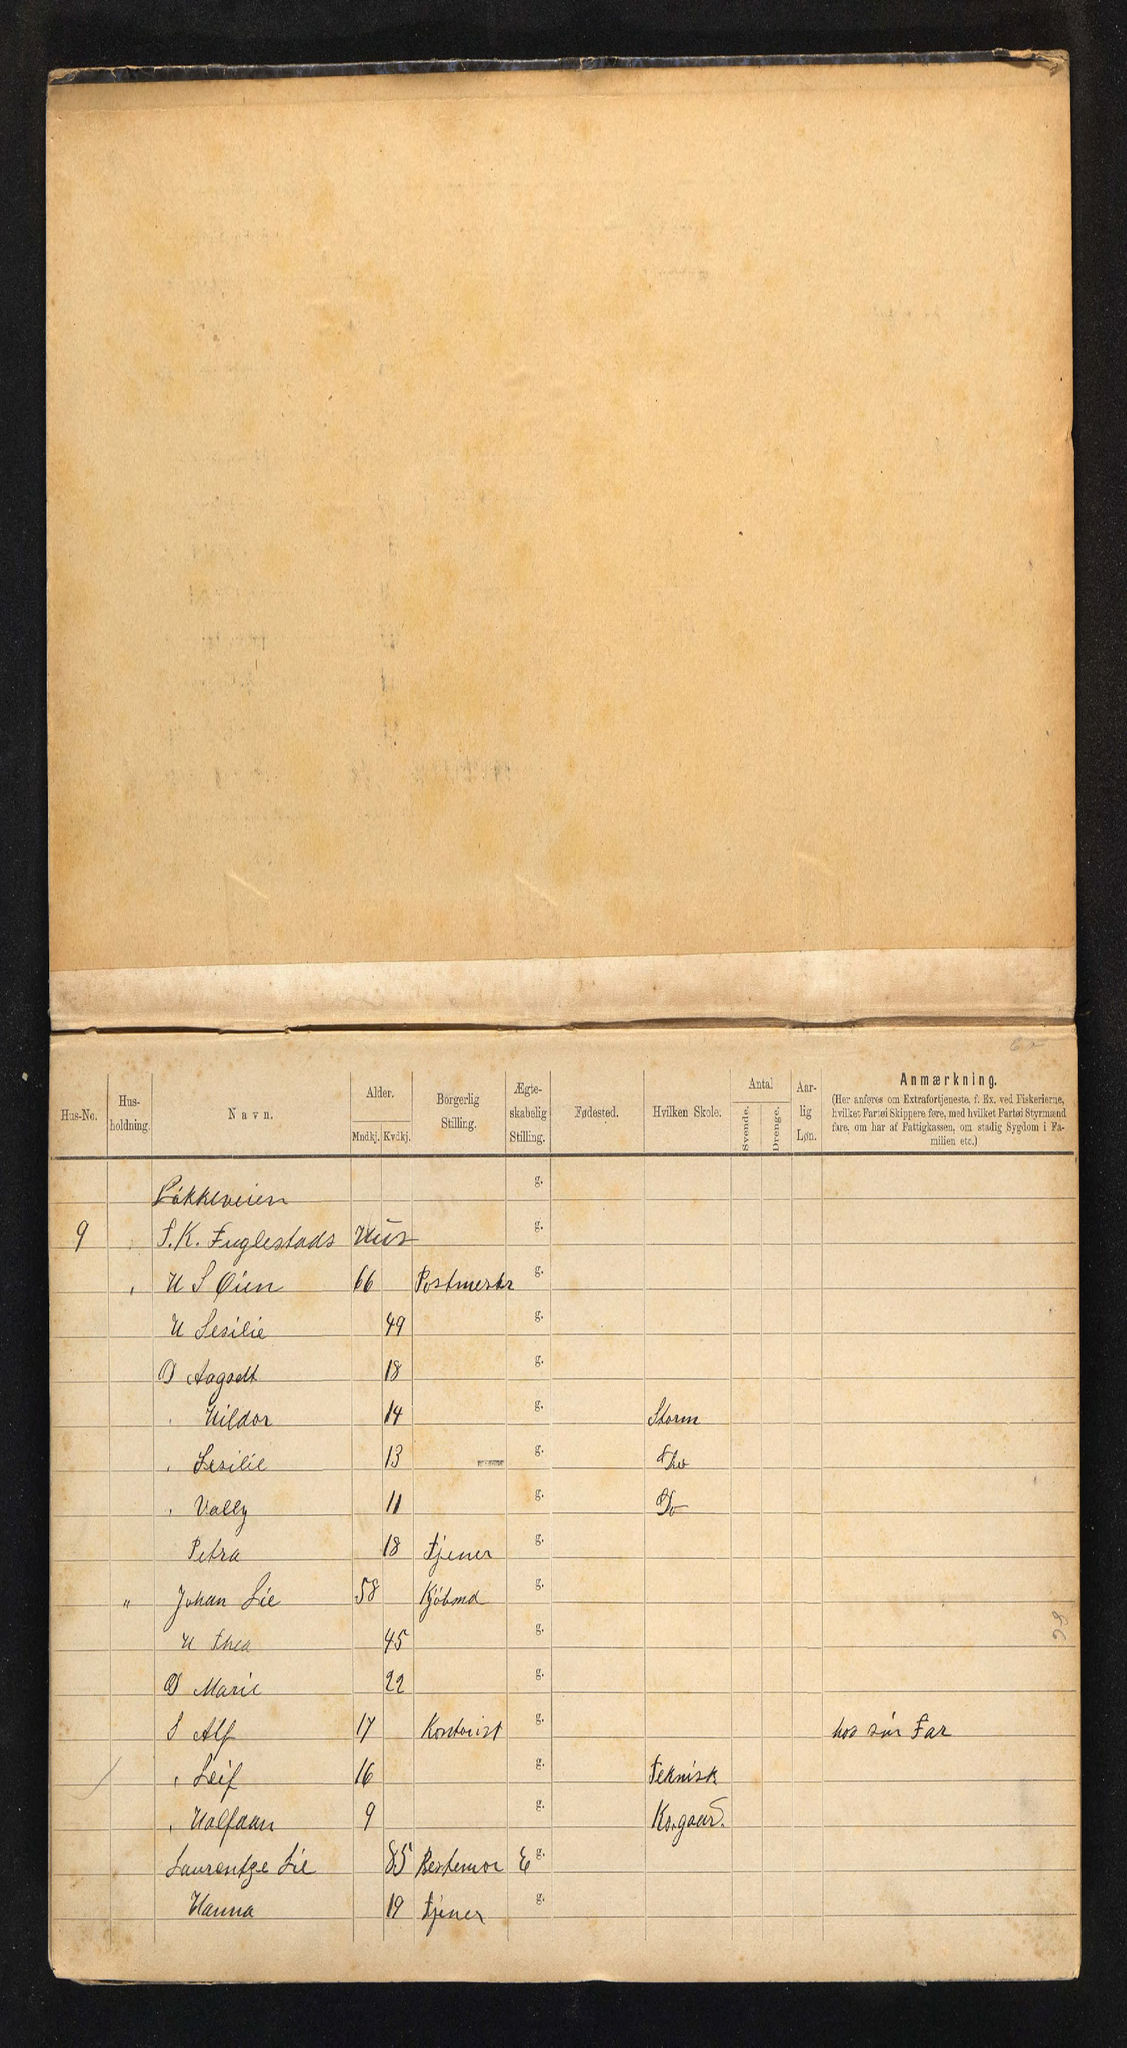 Hus-No. Hus-holdning. Navn. Alder. Mndkj. Kvdkj. Borgerlig Stilling. Ægte-skabelig Stilling. Fødested. Hvilken Skole. Antal Svende. Drenge. Aar-lig Løn. Anmærkning.
(Her anføres om Extrafortjeneste, f. Ex. ved Fiskerierne,
hvilket Fartøi Skippere føre, med hvilket Fartøi Styrmænd
fare, om har af Fattigkassen, om stadig Sygdom i Fa-
milien etc.)
Løkkeveien g.
9 S. K. Fuglestads Hus g.
" H S Øien 66 Postmester g.
H Sesilie 49 g.
D Aagodt 18 g.
" Hildor 14 g. Storm
" Sesilie 13 g. Do
" Vally 11 g. Do
Petra 18 Tjener g.
" Johan Lie 58 Kjøbmd g.
H Thea 45 g.
D Marie 22 g.
S Alf 17 Kontorist g. hos sin Far
" Leif 16 g. Teknisk
" Halfdan 9 g. Ko.gaard.
Laurentze Lie 85 Bestemor E g.
Hanna 19 Tjener g.